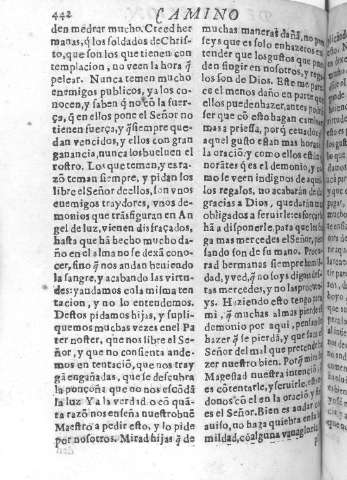 442
CAMINO
den medrar mucho. Creed her
manas, q̃ los soldados de Chris-
to, que son los que tienen con
templacion, no veen la hora q̃
pelear. Nunca temen mucho
enemigos publicos, ya los co-
nocen, y saben q̃ no cõ la fuer-
ça, q̃ en ellos pone el Señor no
tienen fuerça, y q̃ siempre que-
dan vencidos, y ellos con gran
ganancia, nunca los bueluen el
rostro. Los que temen, y es ra-
zõ teman siempre, y pidan los
libre el Señor dellos, son vnos
enemigos traydores, vnos de-
monios que trãsfiguran en An
gel de luz, vienen disfraçados,
hasta que hã becho mucho da-
ño en el alma no se dexã cono-
cer, sino q̃ nos andan beuiendo
la sangre, y acabando las virtu-
des: y andamos en la misma ten
tacion, y no lo entendemos.
Destos pidamos hijas, y supli-
quemos muchas vezes en el Pa
ter noster, que nos libre el Se-
ñor, y que no consienta ande-
mos en tentaciõ, que nos tray
gã engañadas, que se descubra
la ponçoña que no nos escõdã
la luz Y a la verdad. o cõ quã-
ta razõ nos enseña nuestro buẽ
Maestro a pedir esto, y lo pide
por nosotros. Mirad hijas q̃ de
muchas maneras dañã, no pen
seys que es solo en hazeros en
tender que los gustos que pue
den fingir en nosotros, y regalos
son de Dios. Este me parece
es el menos daño en parte que
ellos pueden hazer, antes podra
ser que cõ esto hagan caminar
mas a priessa, porq̃ ceuados de
aquel gusto estan mas horas en
la oraciõ: y como ellos estan ig
norãtes q̃ es el demonio, y co-
mo se veen indignos de aquellos
los regalos, no acabarán de dar
gracias a Dios, quedarán mas
obligados a seruirle: esforçarse
hã a disponerle, para que les ha
ga mas mercedes el Señor, pen-
sando son de su mano. Procu-
rad hermanas siempre humil-
dad, y ved, q̃ no soys dignas des
tas mercedes, y no las procure-
ys. Haziendo esto tengo para
mi, q̃ muchas almas pierde el
demonio por aqui, pensando
hazer q̃ se pierdã, y que saca el
Señor del mal que pretende ha
zer nuestro bien. Porq̃ mira su
Magestad nuestra intenciõ, que
es cõtentarle, y seruirle, estan-
donos cõ el en la oraciõ, y fiel
es el Señor. Bien es andar con
auiso, no haga quiebra en la hu
mildad, cõ alguna vanagloria